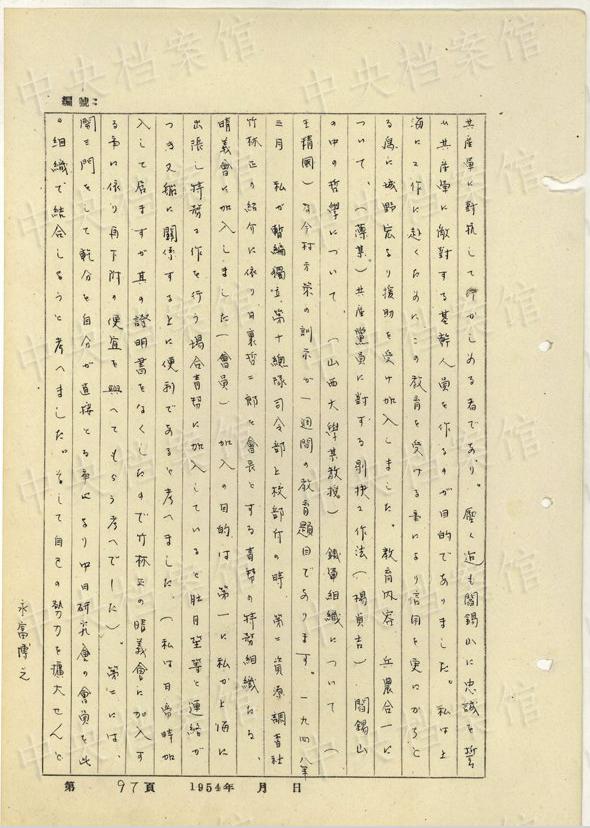 編號：
共産軍に對抗して 者であり。歴く迄も閻錫山に忠誠を誓
い共産軍に敵對する基幹人員を作るのが目的でありました。私は上
海に工作に赴くために、この教育を受ける事により信用を更にかち
る為に城野宏より援助を受け加入しました。教育内容 兵農合一に
ついて、（薄某）共産黨員に對する 工作法（楊貞吉）閻錫山
の中の哲學について、（山西大學某教授）鐵軍組織について（
王靖國）な 今村方策の訓示が一週間の教育題目であります。一九四八年
三月 私が暫編獨立第十總隊司令部上校部付の時、第二資源調査社
竹林正の紹介に依り 哲二郎を會長とする青幇の特務組織たる、
晴義會に加入しました（會員）加入の目的は 第一に私が上海に
出張し特務工作を行う場合青幇に加入していると 等と連絡が
つき又 に關係する上に便利であると考へました。（私は 時加
入して居ますが其の證明書をなくしたので竹林正の晴義會に加入す
る事に依り再下附の便宜を與へてもらう考へでした）。第二には、
閣 門をして 分を自分が直接とる事により中日研究會の會員を此
の組織で結合しようと考へました。そして自己の勢力を擴大せんと
永富博之
第 97頁 1954年 月 日
中央档案馆